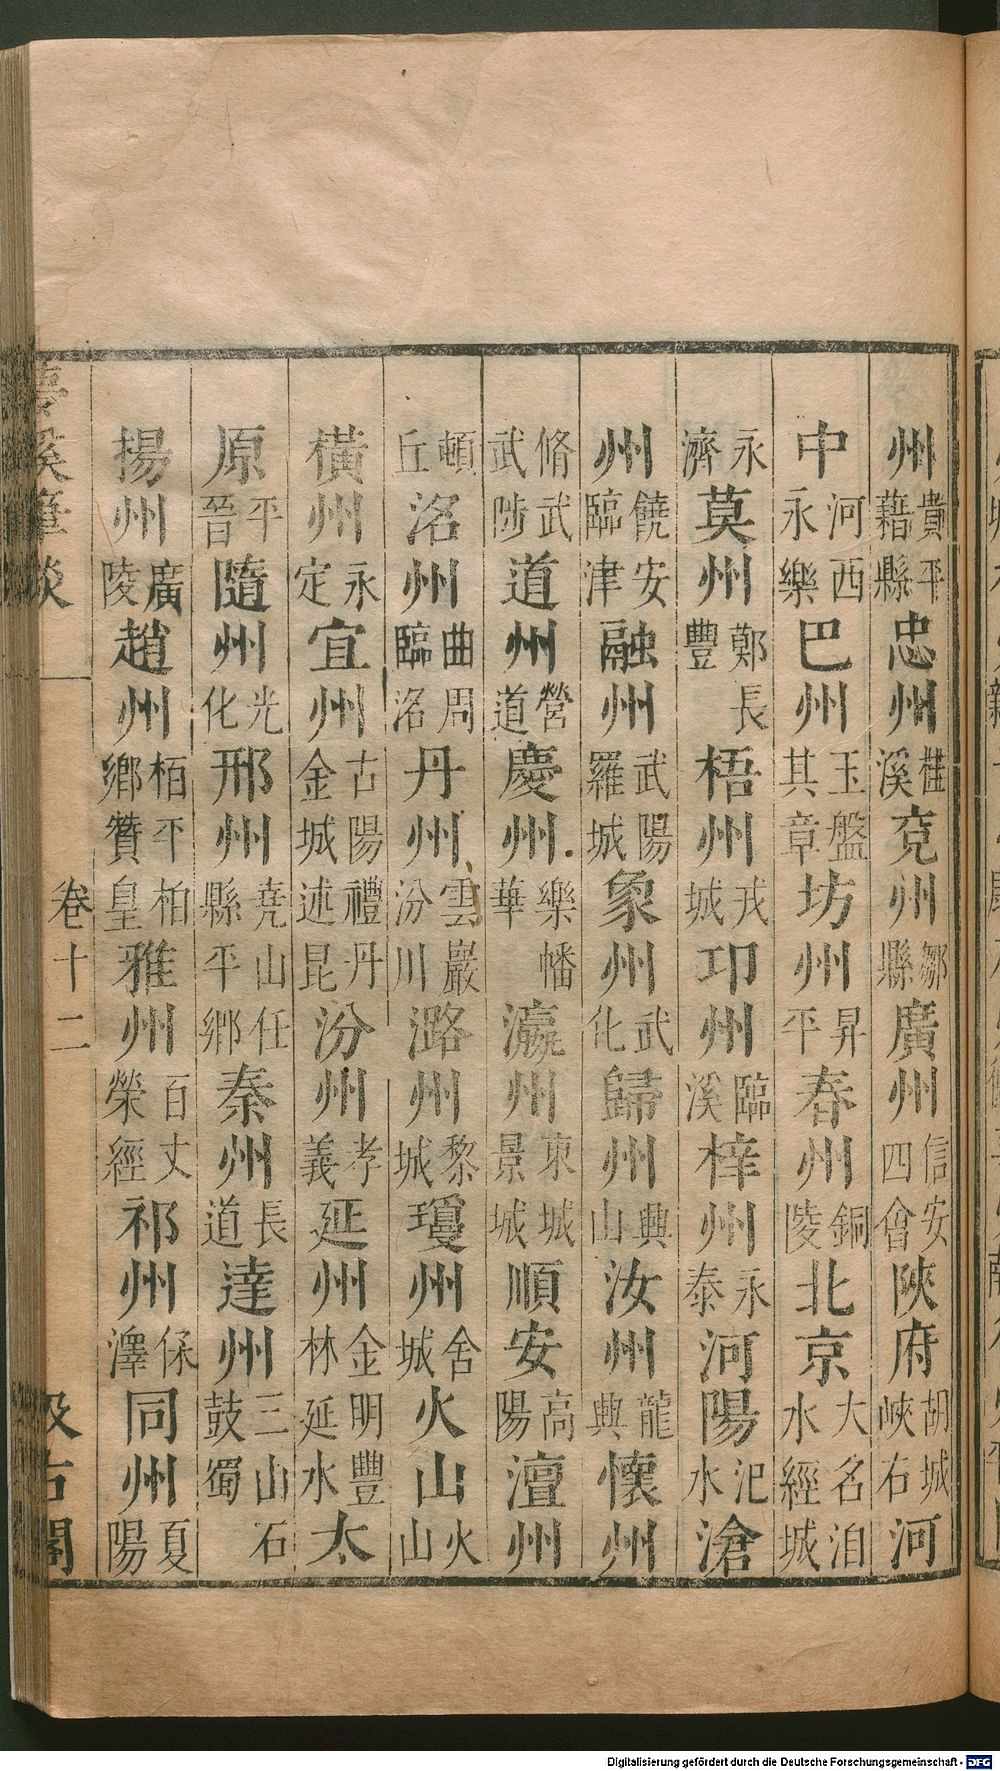 州貴平藉縣忠州桂溪兖州鄒縣廣州信安四會陝府胡城峽右河
中河西永樂巴州玉盤其章坊州昇平春州銅陵北京大名洹水經城
永濟莫州鄭長豐梧州戎城邛州臨溪梓州永泰河陽汜水滄
州饒安臨津融州武陽羅城象州武化歸州興山汝州龍興懷州
脩武武陟道州營道慶州樂蟠華瀛州東城景城順安高陽澶州
頓丘洺州曲周臨洺丹州雲巖汾川潞州黎城瓊州舍城火山火山
橫州永定宜州古陽禮丹金城述昆汾州孝義延州金明豐林延水太
原平晉隨州光化邢州堯山任縣平鄉秦州長道達州三山石鼓蜀
揚州廣陵趙州栢平柏鄉贊皇雅州百丈榮經祁州㑱澤同州夏陽
夢溪筆談 卷十二 汲古閣
Digitalisierung gefördert durch die Deutsche Forschungsgemeinschaft - DFG